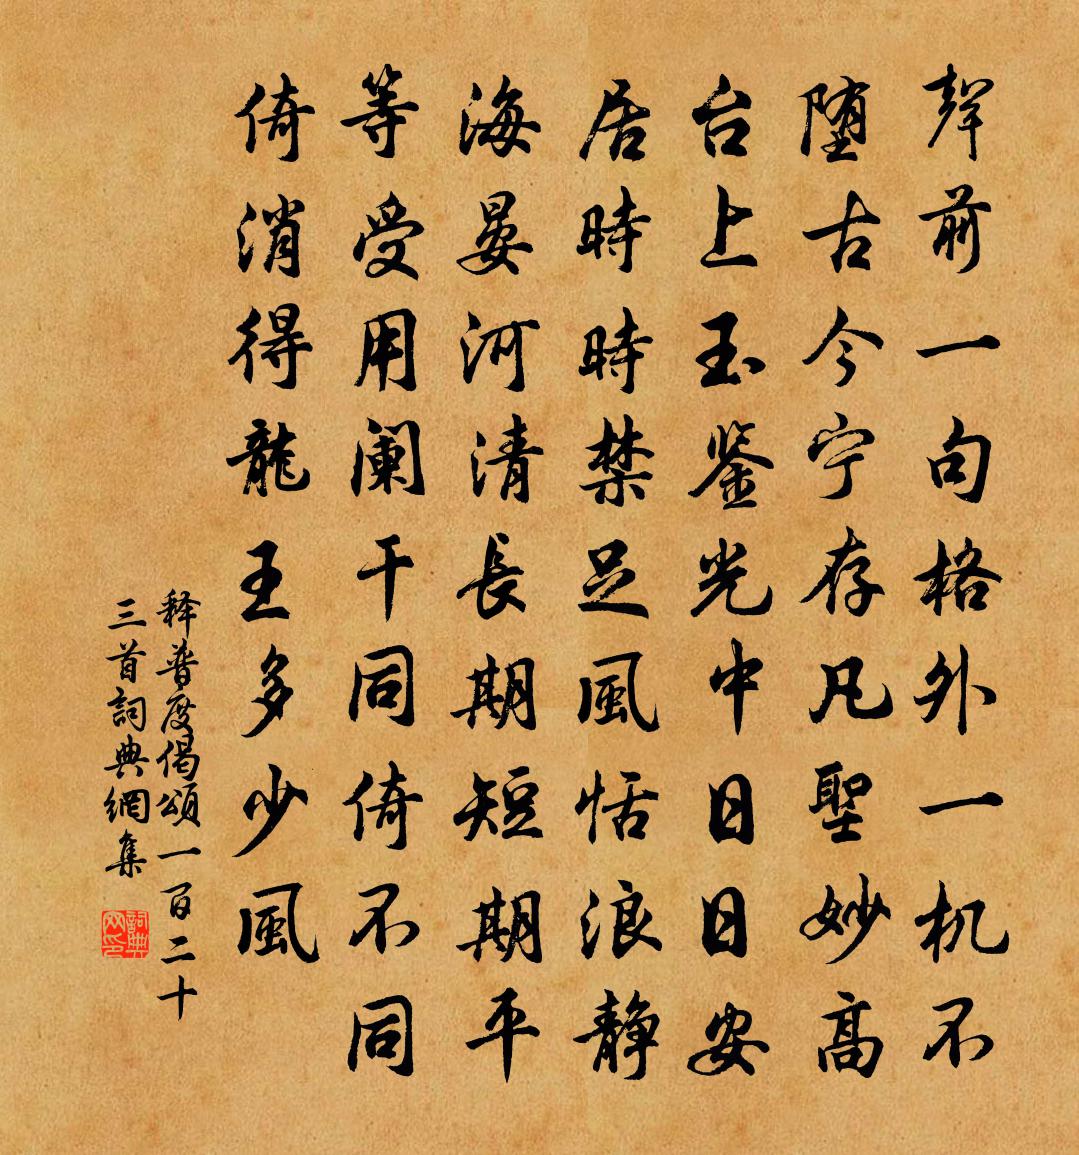 声前一句格外一机不
堕古今宁存凡聖妙高
台上玉鉴光中日日安
居時時禁足風恬浪静
海晏河清長期短期平
等受用阑干同倚不同
倚消得龍王多少風
释普度偈頌一百二十
三首詞典網集
詞典网印